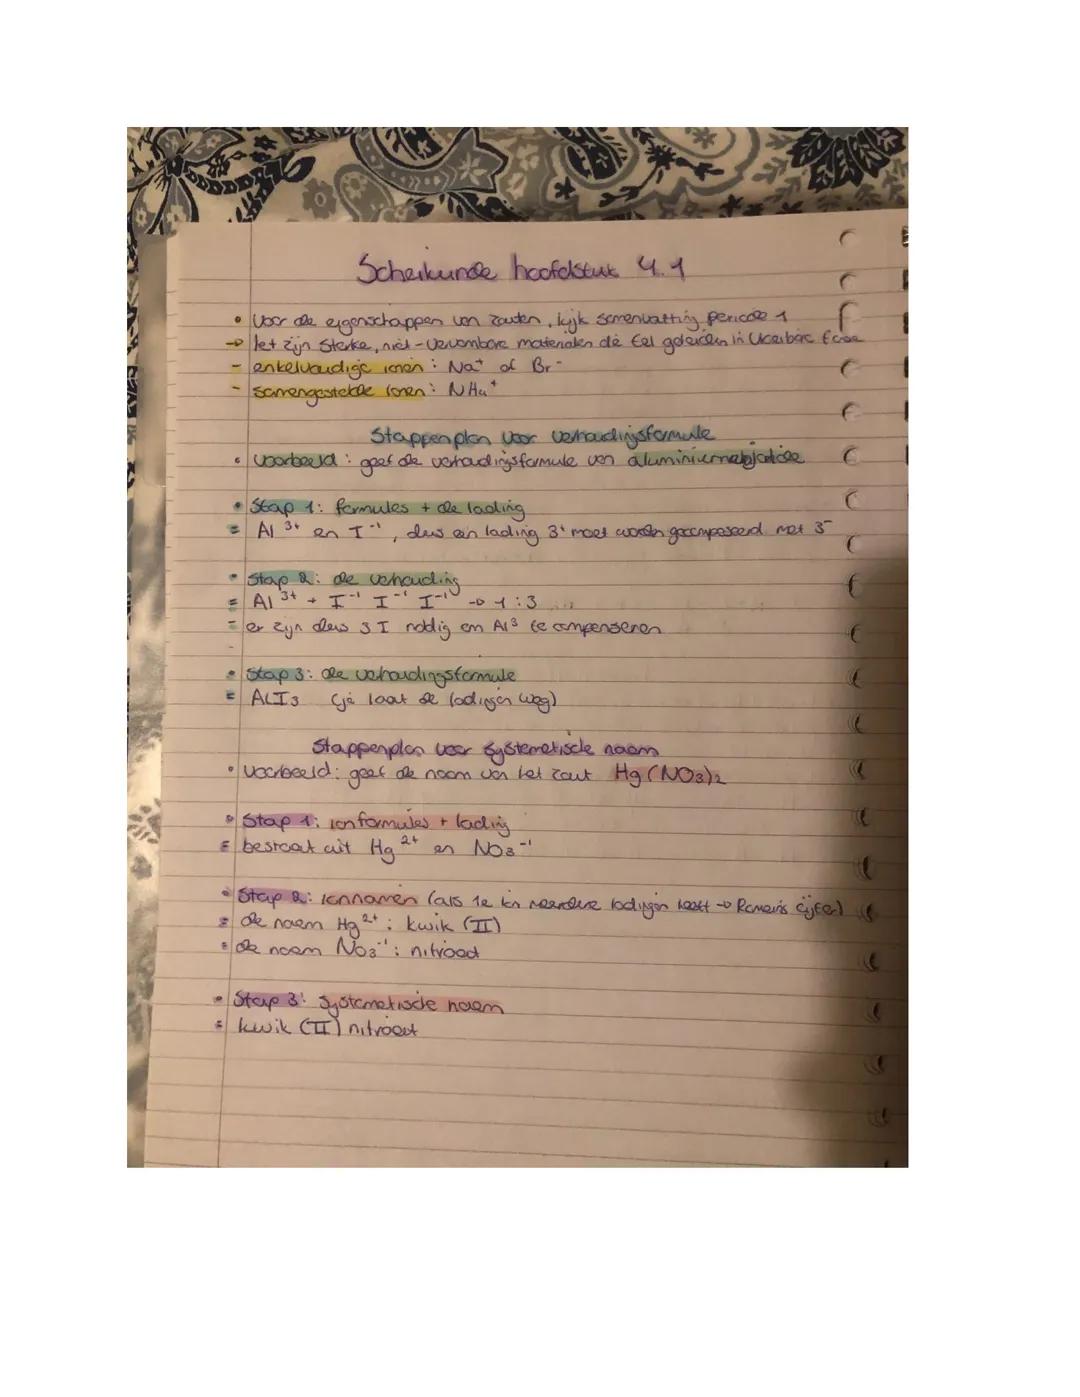 Scheikunde hoofdstuk 4.1
• Voor de eigenschappen van zouten, kijk samenvatting periode 1
→ het zijn sterke, niet-vervormbare materialen die geleiden in vloeibare fase
- enkelvoudige ionen: Na⁺ of Br⁻
- samengestelde ionen: NH₄⁺
Stappenplan voor verhoudingsformule
• voorbeeld: geef de verhoudingsformule van aluminium
• Stap 1: formules + de lading
= Al ³⁺ en I⁻¹, dus een lading 3⁺ moet worden gecompenseerd met 3⁻
• Stap 2: de verhouding
= Al ³⁺ + I⁻¹ I⁻¹ I⁻¹ → 1:3
= er zijn dus 3 I nodig om Al³ te compenseren
• Stap 3: de verhoudingsformule
= AlI₃ (je laat de ladingen weg)
Stappenplan voor systematische naam
• Voorbeeld: geef de naam van het zout Hg(NO₃)₂
• Stap 1: ionformules + lading
= bestaat uit Hg ²⁺ en NO₃⁻¹
• Stap 2: ionnamen (als 1e ion meerdere ladingen heeft → Romeins cijfer)
= de naam Hg ²⁺: kwik (II)
= de naam NO₃⁻¹: nitraat
• Stap 3: systematische naam
= kwik (II) nitraat